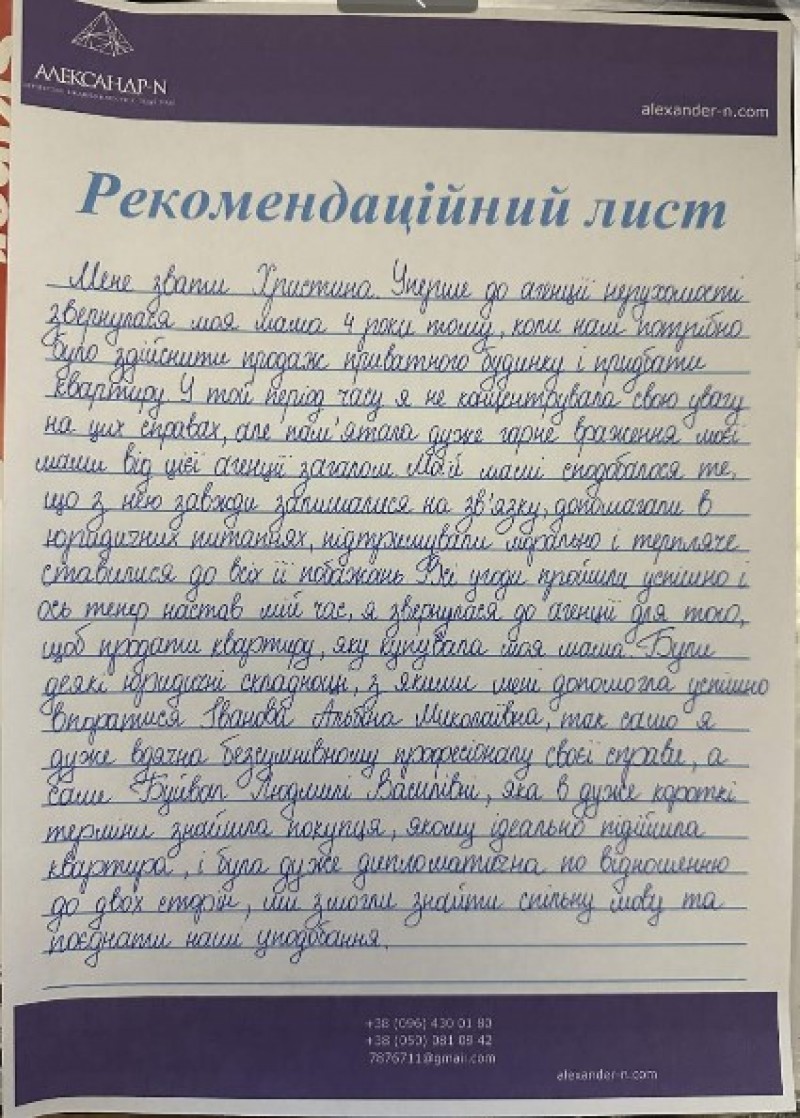 АЛЕКСАНДР-N
alexander-n.com
Рекомендаційний лист
Мене звати Христина. Уперше до агенції нерухомості
звернулася моя мама 4 роки тому, коли нам потрібно
було здійснити продаж приватного будинку і придбати
квартиру. У той період часу я не концентрувала свою увагу
на цих справах, але пам'ятала дуже гарне враження моєї
мами від цієї агенції загалом. Моїй мамі сподобалося те,
що з нею завжди залишалися на зв'язку, допомагали в
юридичних питаннях, підтримували морально і терпляче
ставилися до всіх її побажань. Всі угоди пройшли успішно і
ось тепер настав мій час, я звернулася до агенції для того,
щоб продати квартиру, яку купувала моя мама. Були
деякі юридичні складнощі, з якими мені допомогла успішно
впоратися Іванова Альбіна Миколаївна, так само я
дуже вдячна безсумнівному професіоналу своєї справи, а
саме Буйвал Людмилі Василівні, яка в дуже короткі
терміни знайшла покупця, якому ідеально підійшла
квартира, і була дуже дипломатична по відношенню
до двох сторін, ми змогли знайти спільну мову та
поєднати наші уподобання.
+38 (096) 430 01 80
+38 (050) 081 09 42
7876711@gmail.com
alexander-n.com